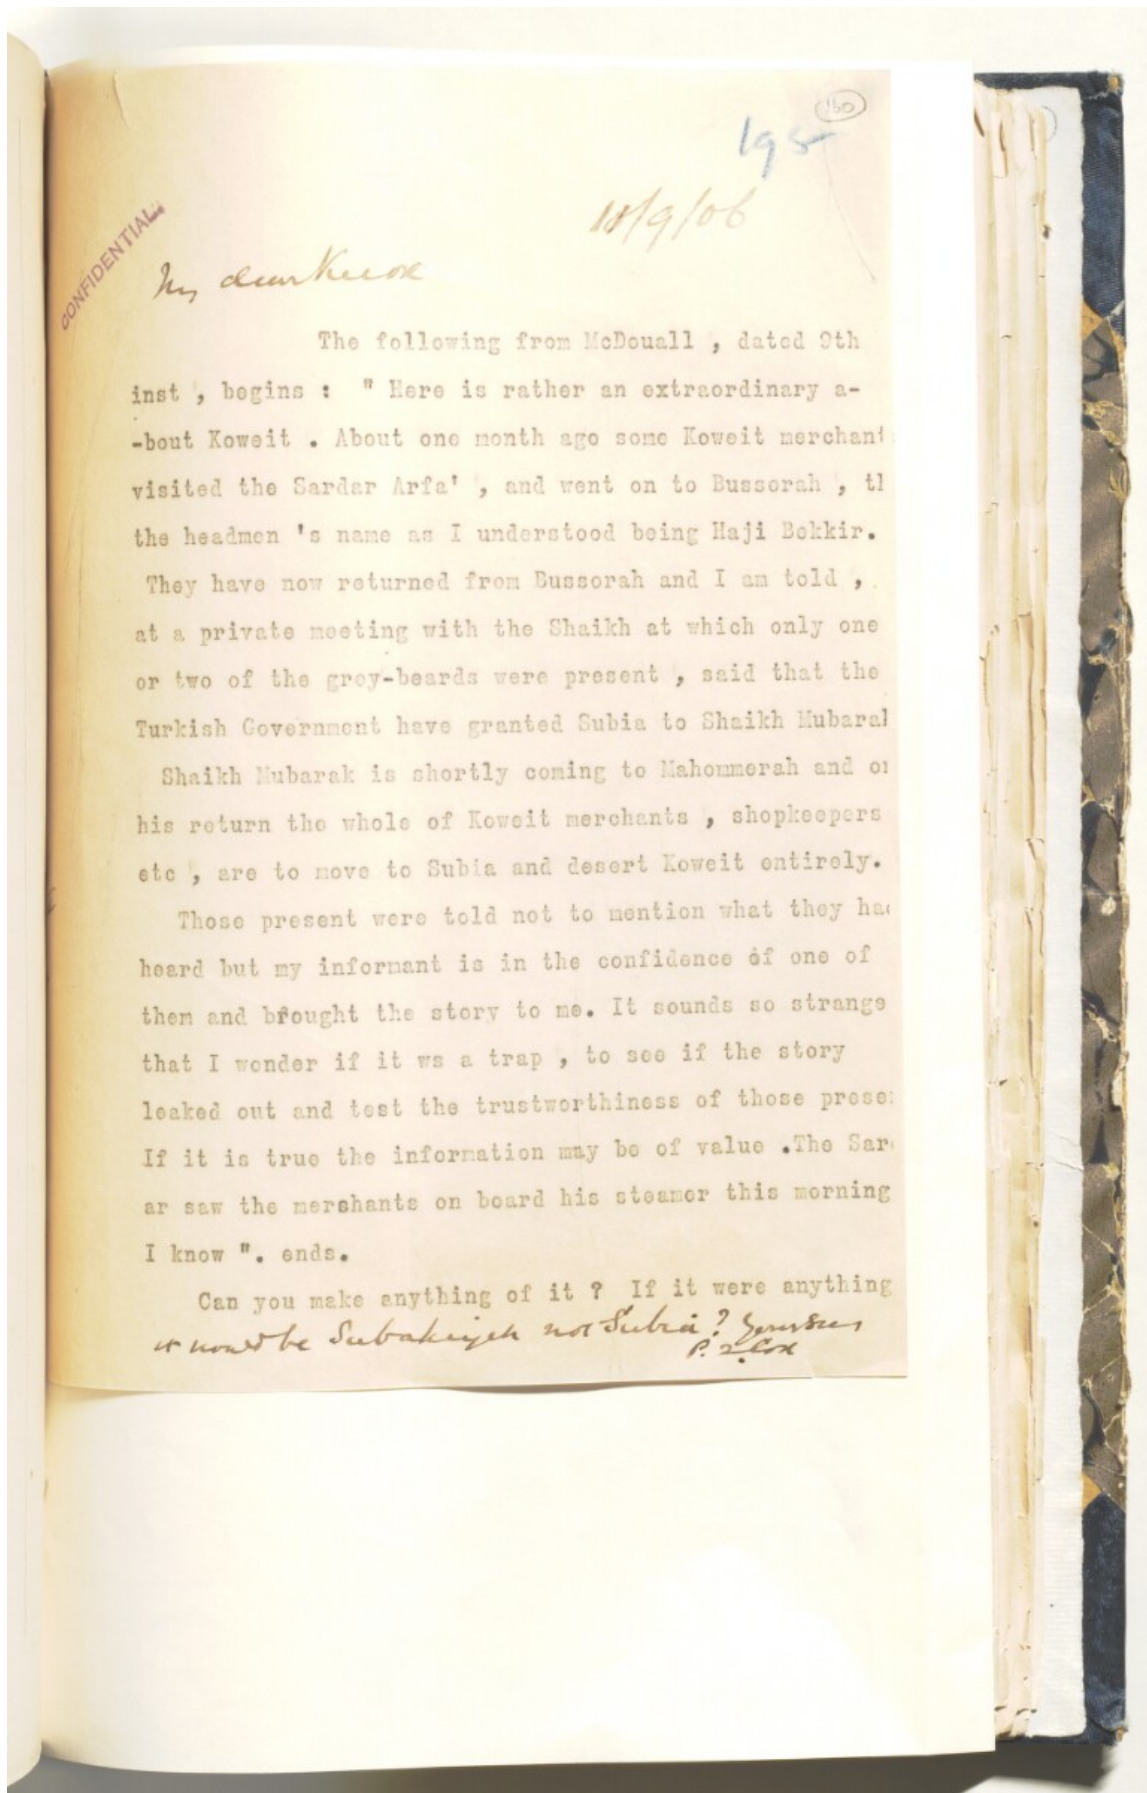 150
195
11/9/06
CONFIDENTIAL.
My dear Knox
The following from McDouall , dated 9th
inst , begins : " Here is rather an extraordinary a-
-bout Koweit . About one month ago some Koweit merchant
visited the Sardar Arfa' , and went on to Bussorah , tl
the headmen 's name as I understood being Haji Bekkir.
They have now returned from Bussorah and I am told ,
at a private meeting with the Shaikh at which only one
or two of the grey-beards were present , said that the
Turkish Government have granted Subia to Shaikh Mubara
Shaikh Mubarak is shortly coming to Mahommerah and on
his return the whole of Koweit merchants , shopkeepers
etc , are to move to Subia and desert Koweit entirely.
Those present were told not to mention what they had
heard but my informant is in the confidence of one of
them and brought the story to me. It sounds so strange
that I wonder if it ws a trap , to see if the story
leaked out and test the trustworthiness of those prese
If it is true the information may be of value .The Sar
ar saw the mershants on board his steamer this morning
I know ". ends.
Can you make anything of it ? If it were anything
it would be Subakiyeh not Subia? Yours
P. Z. Cox